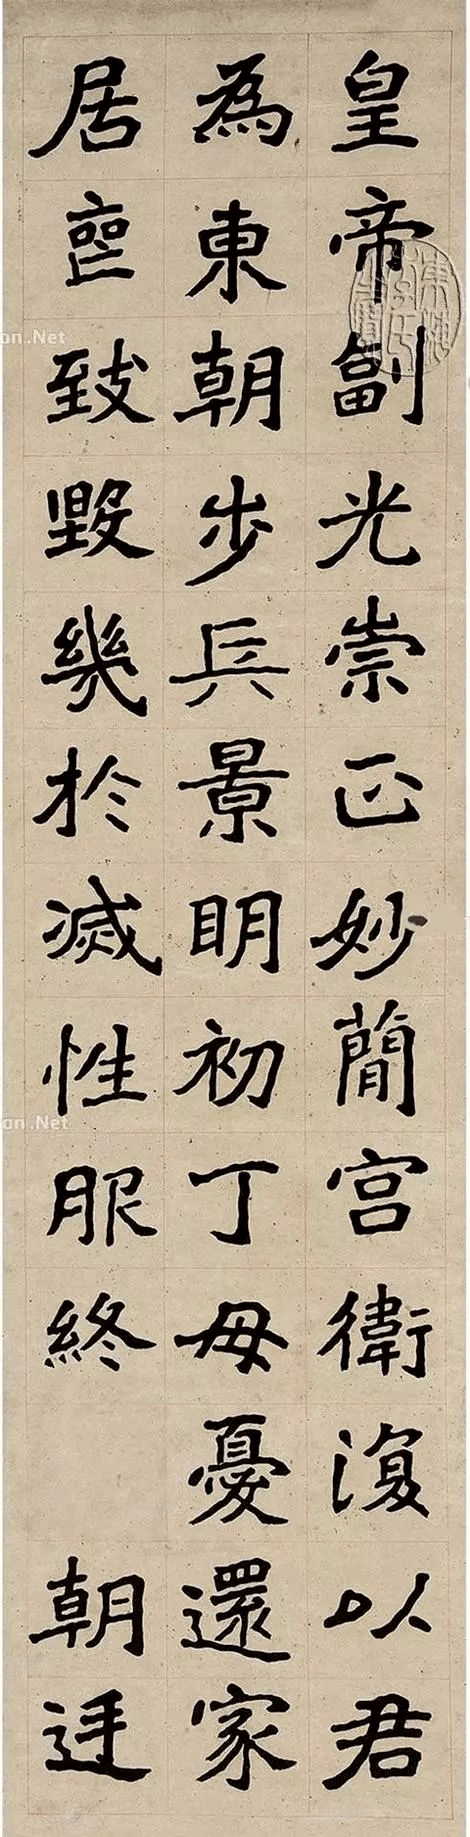 皇帝副光崇正妙簡宮衛復以君
為東朝步兵景明初丁母憂還家
居喪致毀幾於滅性服終　朝廷
on.Net
on.Net